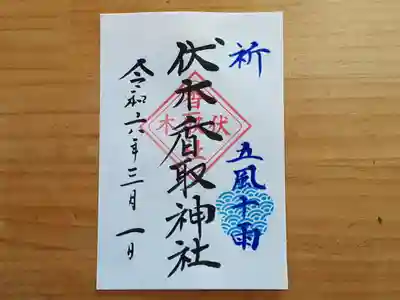 祈
五風十雨
伏木香取神社
令和六年三月一日